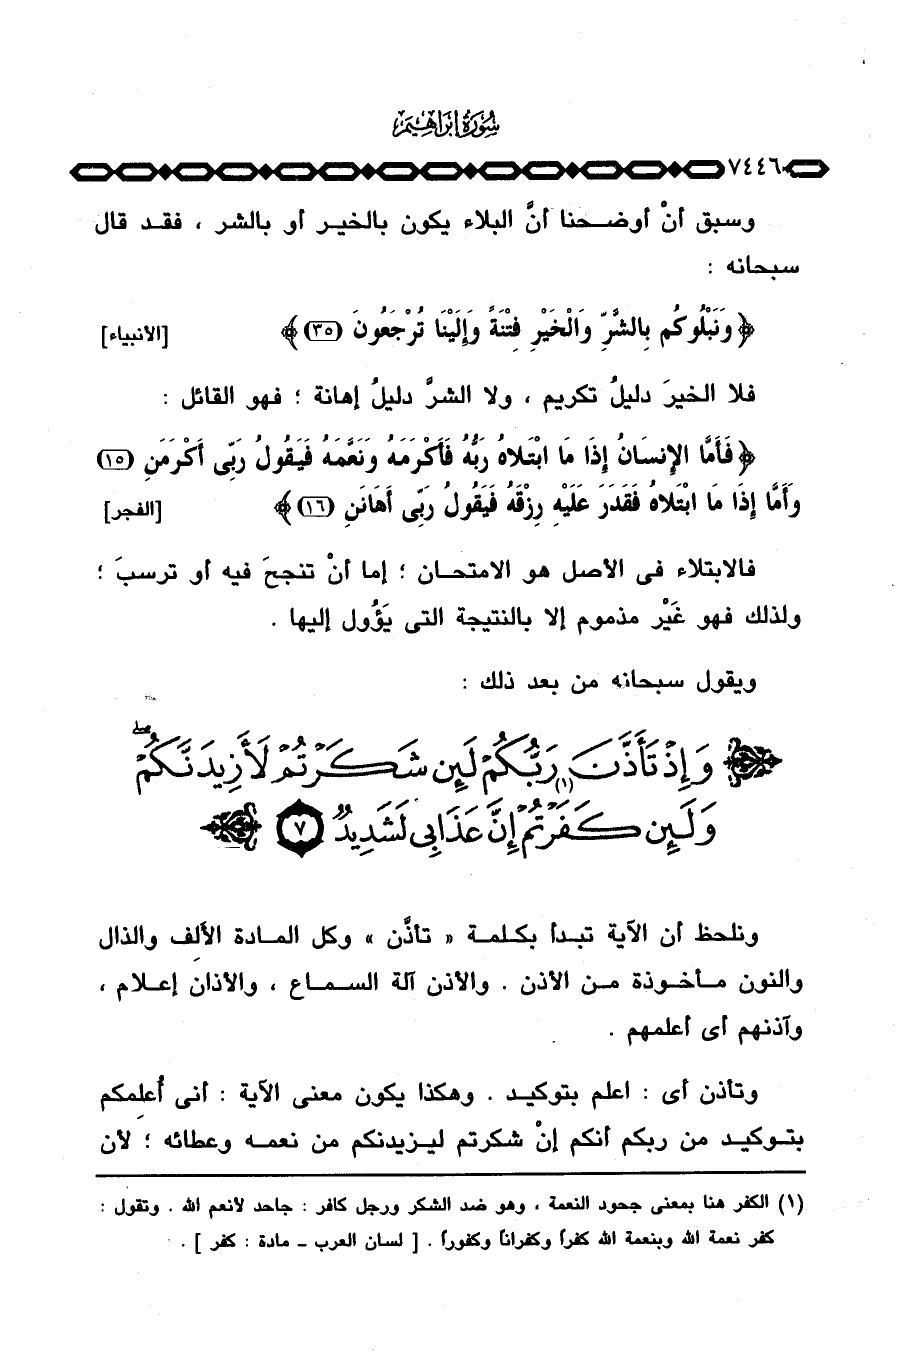 سُورَةُ إِبْرَاهِيمَ
٧٤٤٦
وسبق أنْ أوضحنا أنَّ البلاء يكون بالخير أو بالشر ، فقد قال
سبحانه :
﴿ وَنَبْلُوكُم بِالشَّرِّ وَالْخَيْرِ فِتْنَةً وَإِلَيْنَا تُرْجَعُونَ (٣٥) ﴾ [الأنبياء]
فلا الخيرَ دليلُ تكريم ، ولا الشرَّ دليلُ إهانة ؛ فهو القائل :
﴿ فَأَمَّا الإِنسَانُ إِذَا مَا ابْتَلاهُ رَبُّهُ فَأَكْرَمَهُ وَنَعَّمَهُ فَيَقُولُ رَبِّى أَكْرَمَنِ (١٥)
وَأَمَّا إِذَا مَا ابْتَلاهُ فَقَدَرَ عَلَيْهِ رِزْقَهُ فَيَقُولُ رَبِّى أَهَانَنِ (١٦) ﴾ [الفجر]
فالابتلاء فى الأصل هو الامتحان ؛ إما أنْ تنجحَ فيه أو ترسبَ ؛
ولذلك فهو غَيْر مذموم إلا بالنتيجة التى يَؤُول إليها .
ويقول سبحانه من بعد ذلك :
وَإِذْ تَأَذَّنَ رَبُّكُمْ لَئِن شَكَرْتُمْ لَأَزِيدَنَّكُمْ ۖ
وَلَئِن كَفَرْتُمْ (١) إِنَّ عَذَابِى لَشَدِيدٌ ٧
ونلحظ أن الآية تبدأ بكلمة « تأذَّن » وكل المادة الألف والذال
والنون مأخوذة من الأذن . والأذن آلة السماع ، والأذان إعلام ،
وآذنهم أى أعلمهم .
وتأذن أى : اعلم بتوكيد . وهكذا يكون معنى الآية : أنى أُعلمكم
بتوكيد من ربكم أنكم إنْ شكرتم ليزيدنكم من نعمه وعطائه ؛ لأن
(١) الكفر هنا بمعنى جحود النعمة ، وهو ضد الشكر ورجل كافر : جاحد لأنعم الله . وتقول :
كفر نعمة الله وبنعمة الله كفراً وكفراناً وكفوراً . [ لسان العرب - مادة : كفر ] .